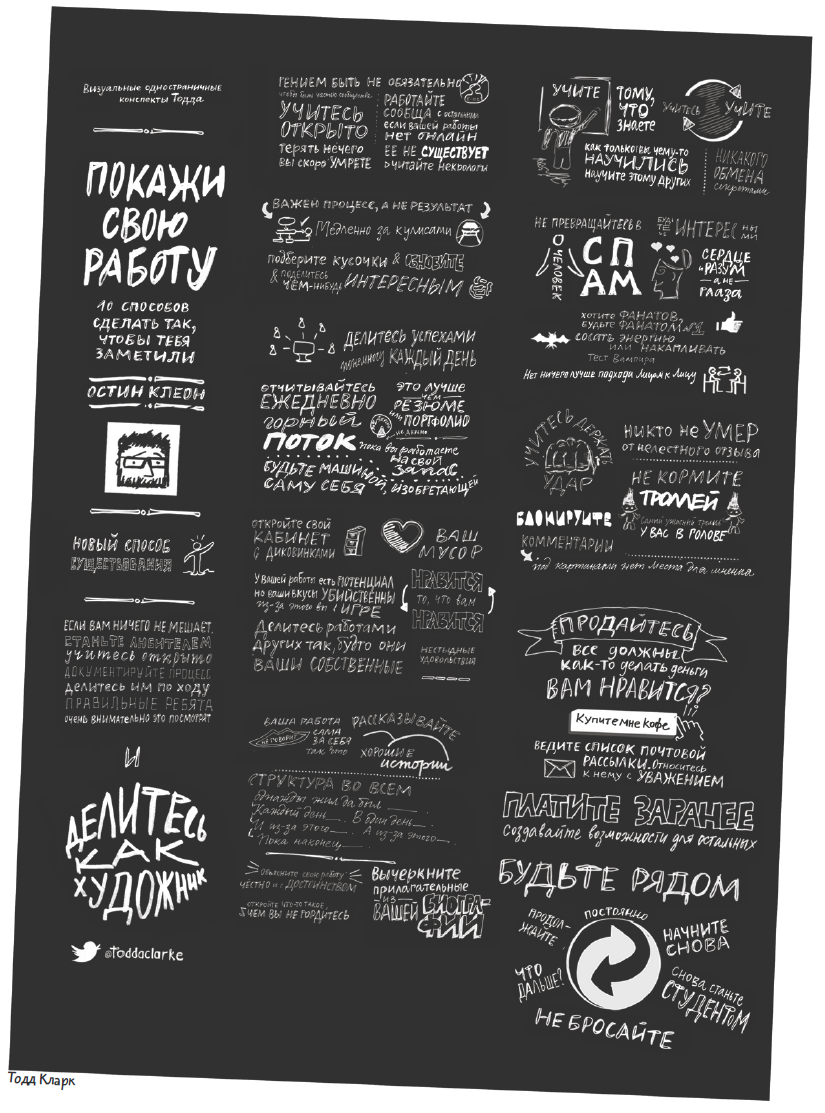 Визуальные одностраничные
конспекты Тодда
ПОКАЖИ
СВОЮ
РАБОТУ
10 СПОСОБОВ
СДЕЛАТЬ ТАК,
ЧТОБЫ ТЕБЯ
ЗАМЕТИЛИ
ОСТИН КЛЕОН
НОВЫЙ СПОСОБ
СУЩЕСТВОВАНИЯ
ЕСЛИ ВАМ НИЧЕГО НЕ МЕШАЕТ,
СТАНЬТЕ ЛЮБИТЕЛЕМ
учитесь открыто
ДОКУМЕНТИРУЙТЕ ПРОЦЕСС
делитесь им по ходу
ПРАВИЛЬНЫЕ РЕБЯТА
очень внимательно это посмотрят
И
ДЕЛИТЕСЬ
КАК
ХУДОЖНИК
@toddaclarke
ГЕНИЕМ БЫТЬ НЕ ОБЯЗАТЕЛЬНО
чтобы быть частью сообщества
УЧИТЕСЬ
ОТКРЫТО
терять нечего
вы скоро УМРЕТЕ
РАБОТАЙТЕ
СООБЩА с остальными
если вашей работы
нет онлайн
ЕЕ НЕ СУЩЕСТВУЕТ
читайте некрологи
ВАЖЕН ПРОЦЕСС, А НЕ РЕЗУЛЬТАТ
Медленно за кулисами
подберите кусочки & ОБНОВИТЕ
& поделитесь
чем-нибудь ИНТЕРЕСНЫМ
ДЕЛИТЕСЬ УСПЕХАМИ
понемногу КАЖДЫЙ ДЕНЬ
ОТЧИТЫВАЙТЕСЬ
ЕЖЕДНЕВНО
горный
ПОТОК
ЭТО ЛУЧШЕ
ЧЕМ
РЕЗЮМЕ
или ПОРТФОЛИО
пока вы работаете
на свой
запас
БУДЬТЕ МАШИНОЙ, ИЗОБРЕТАЮЩЕЙ
САМУ СЕБЯ
ОТКРОЙТЕ СВОЙ
КАБИНЕТ
С ДИКОВИНКАМИ
ВАШ
МУСОР
У Вашей работы есть ПОТЕНЦИАЛ
но ваши вкусы УБИЙСТВЕННЫ
из-за этого вы в ИГРЕ
НРАВИТСЯ
то, что вам
НРАВИТСЯ
Делитесь работами
других так, будто они
ВАШИ СОБСТВЕННЫЕ
НЕСТЫДНЫЕ
УДОВОЛЬСТВИЯ
ВАША РАБОТА
НЕ ГОВОРИТ
САМА
ЗА СЕБЯ
так что
РАССКАЗЫВАЙТЕ
ХОРОШИЕ
истории
СТРУКТУРА ВО ВСЕМ
Однажды жил да был
Каждый день В один день
И из-за этого А из-за этого
Пока наконец
Объясните свою работу
ЧЕСТНО и с ДОСТОИНСТВОМ
откройте что-то такое,
ЧЕМ ВЫ НЕ ГОРДИТЕСЬ
ВЫЧЕРКНИТЕ
прилагательные
ИЗ
ВАШЕЙ БИОГРА-
ФИИ
УЧИТЕ
ТОМУ,
ЧТО
знаете
УЧИТЕСЬ УЧИТЕ
как только вы чему-то
НАУЧИЛИСЬ
научите этому других
НИКАКОГО
ОБМЕНА
секретами
НЕ ПРЕВРАЩАЙТЕСЬ В
СП
АМ
О ЧЕЛОВЕК
БУДЬ
ТЕ ИНТЕРЕСНЫ
МИ
СЕРДЦЕ
и РАЗУМ
а не
глаза
хотите ФАНАТОВ,
будьте ФАНАТОМ
сосать энергию
или накапливать
тест Вампира
Нет ничего лучше подхода Лицом к Лицу
УЧИТЕСЬ ДЕРЖАТЬ
УДАР
никто не УМЕР
от нелестного отзыва
НЕ КОРМИТЕ
ТРОЛЛЕЙ
Самый ужасный тролль
У ВАС В ГОЛОВЕ
БЛОКИРУЙТЕ
КОММЕНТАРИИ
под картинами нет места для мнения
ПРОДАЙТЕСЬ
все должны
как-то делать деньги
ВАМ НРАВИТСЯ?
Купите мне кофе
ВЕДИТЕ СПИСОК ПОЧТОВОЙ
РАССЫЛКИ. Относитесь
к нему с УВАЖЕНИЕМ
ПЛАТИТЕ ЗАРАНЕЕ
Создавайте возможности для остальных
БУДЬТЕ РЯДОМ
ПРОДОЛ-
ЖАЙТЕ
ПОСТОЯННО
НАЧНИТЕ
СНОВА
ЧТО
ДАЛЬШЕ?
Снова станьте
СТУДЕНТОМ
НЕ БРОСАЙТЕ
Тодд Кларк